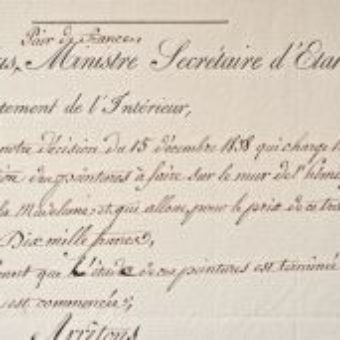 Pair de France
us, Ministre Secrétaire d'Etat
tement de l'Intérieur,
notre décision du 15 décembre 1838 qui charge
ion des peintures à faire sur le mur de l'hém
la Madelaine, et qui alloue, pour le prix de ce tra
Dix mille francs,
nt que l'étude de ces peintures est terminée
est commencée;
Arrêtons